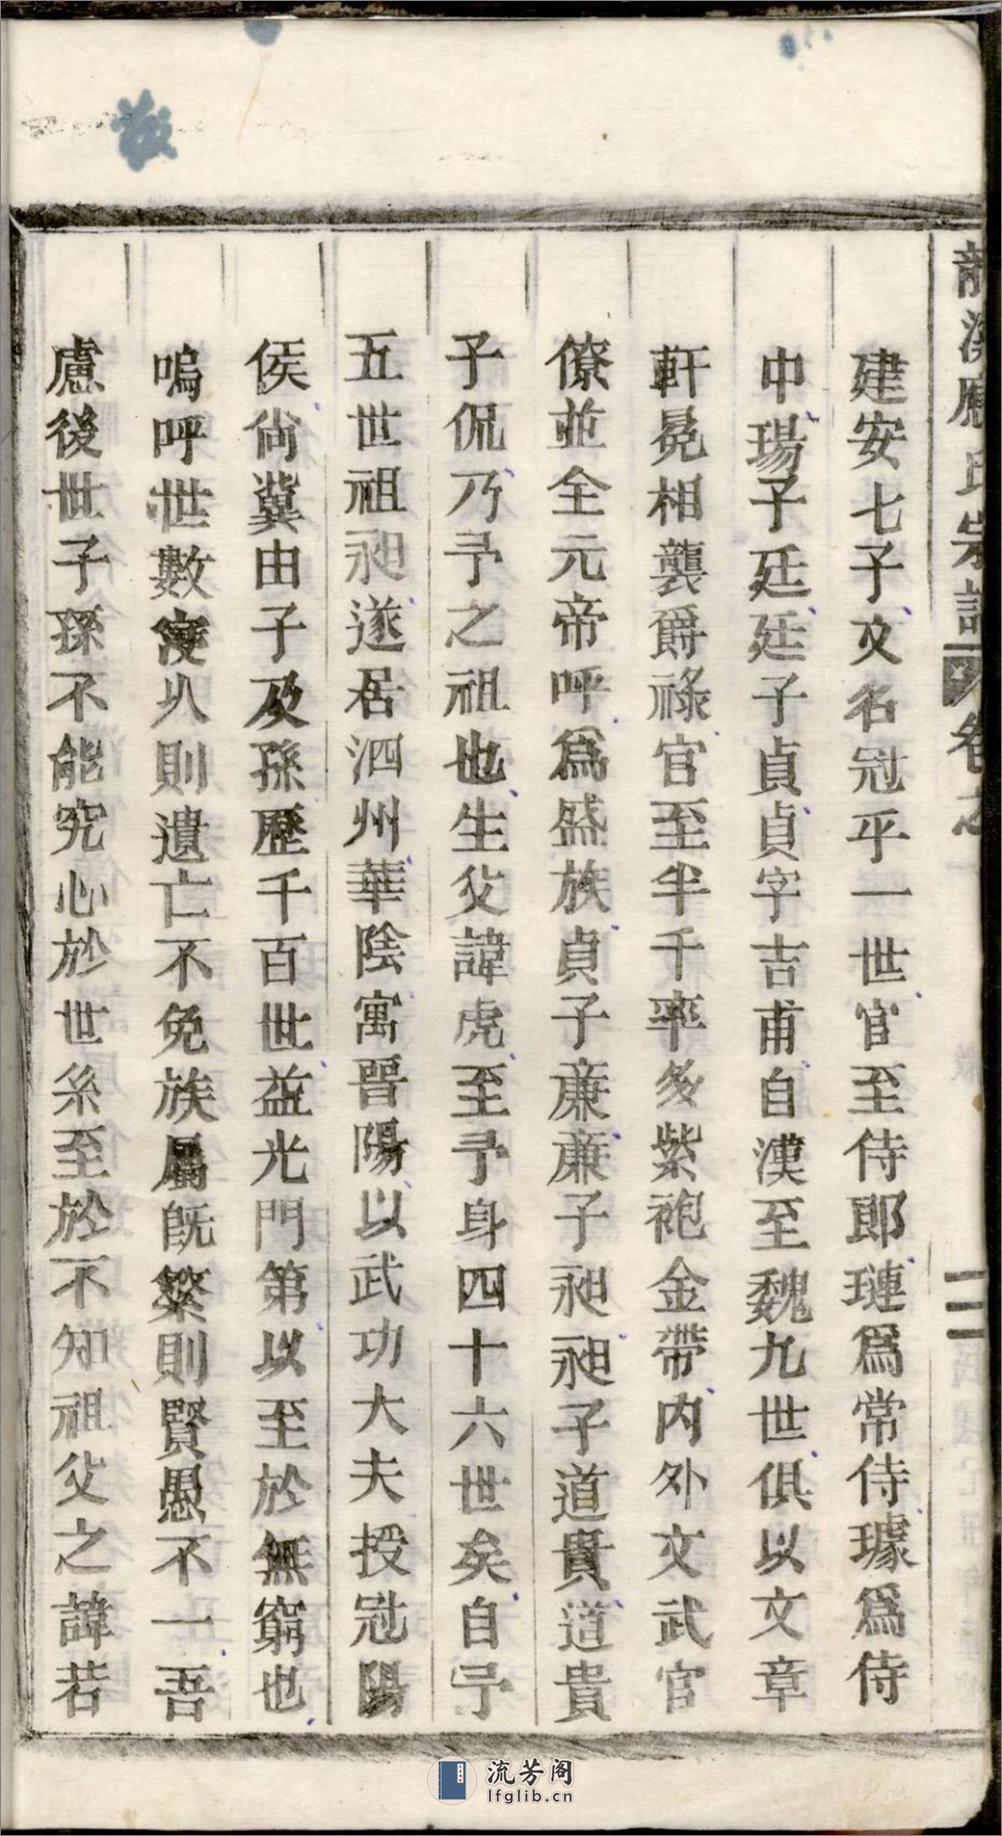 建安七子文名冠乎一世官至侍郎璉爲常侍璩爲侍
中瑒子廷廷子貞貞字吉甫自漢至魏九世俱以文章
軒冕相襲爵祿官至半千率多紫袍金帶內外文武官
僚並全元帝呼爲盛族貞子廉廉子昶昶子道貴道貴
子侃乃予之祖也生父諱虎至予身四十六世矣自予
五世祖昶遂居泗州華陰寓晉陽以武功大夫授冠陽
侯尙冀由子及孫歷千百世益光門第以至於無窮也
嗚呼世數寖久則遺亡不免族屬旣蘩則賢愚不一吾
慮後世子孫不能究心於世系至於不知祖父之諱若
氏宗譜 卷之
二
流芳阁
lfglib.cn